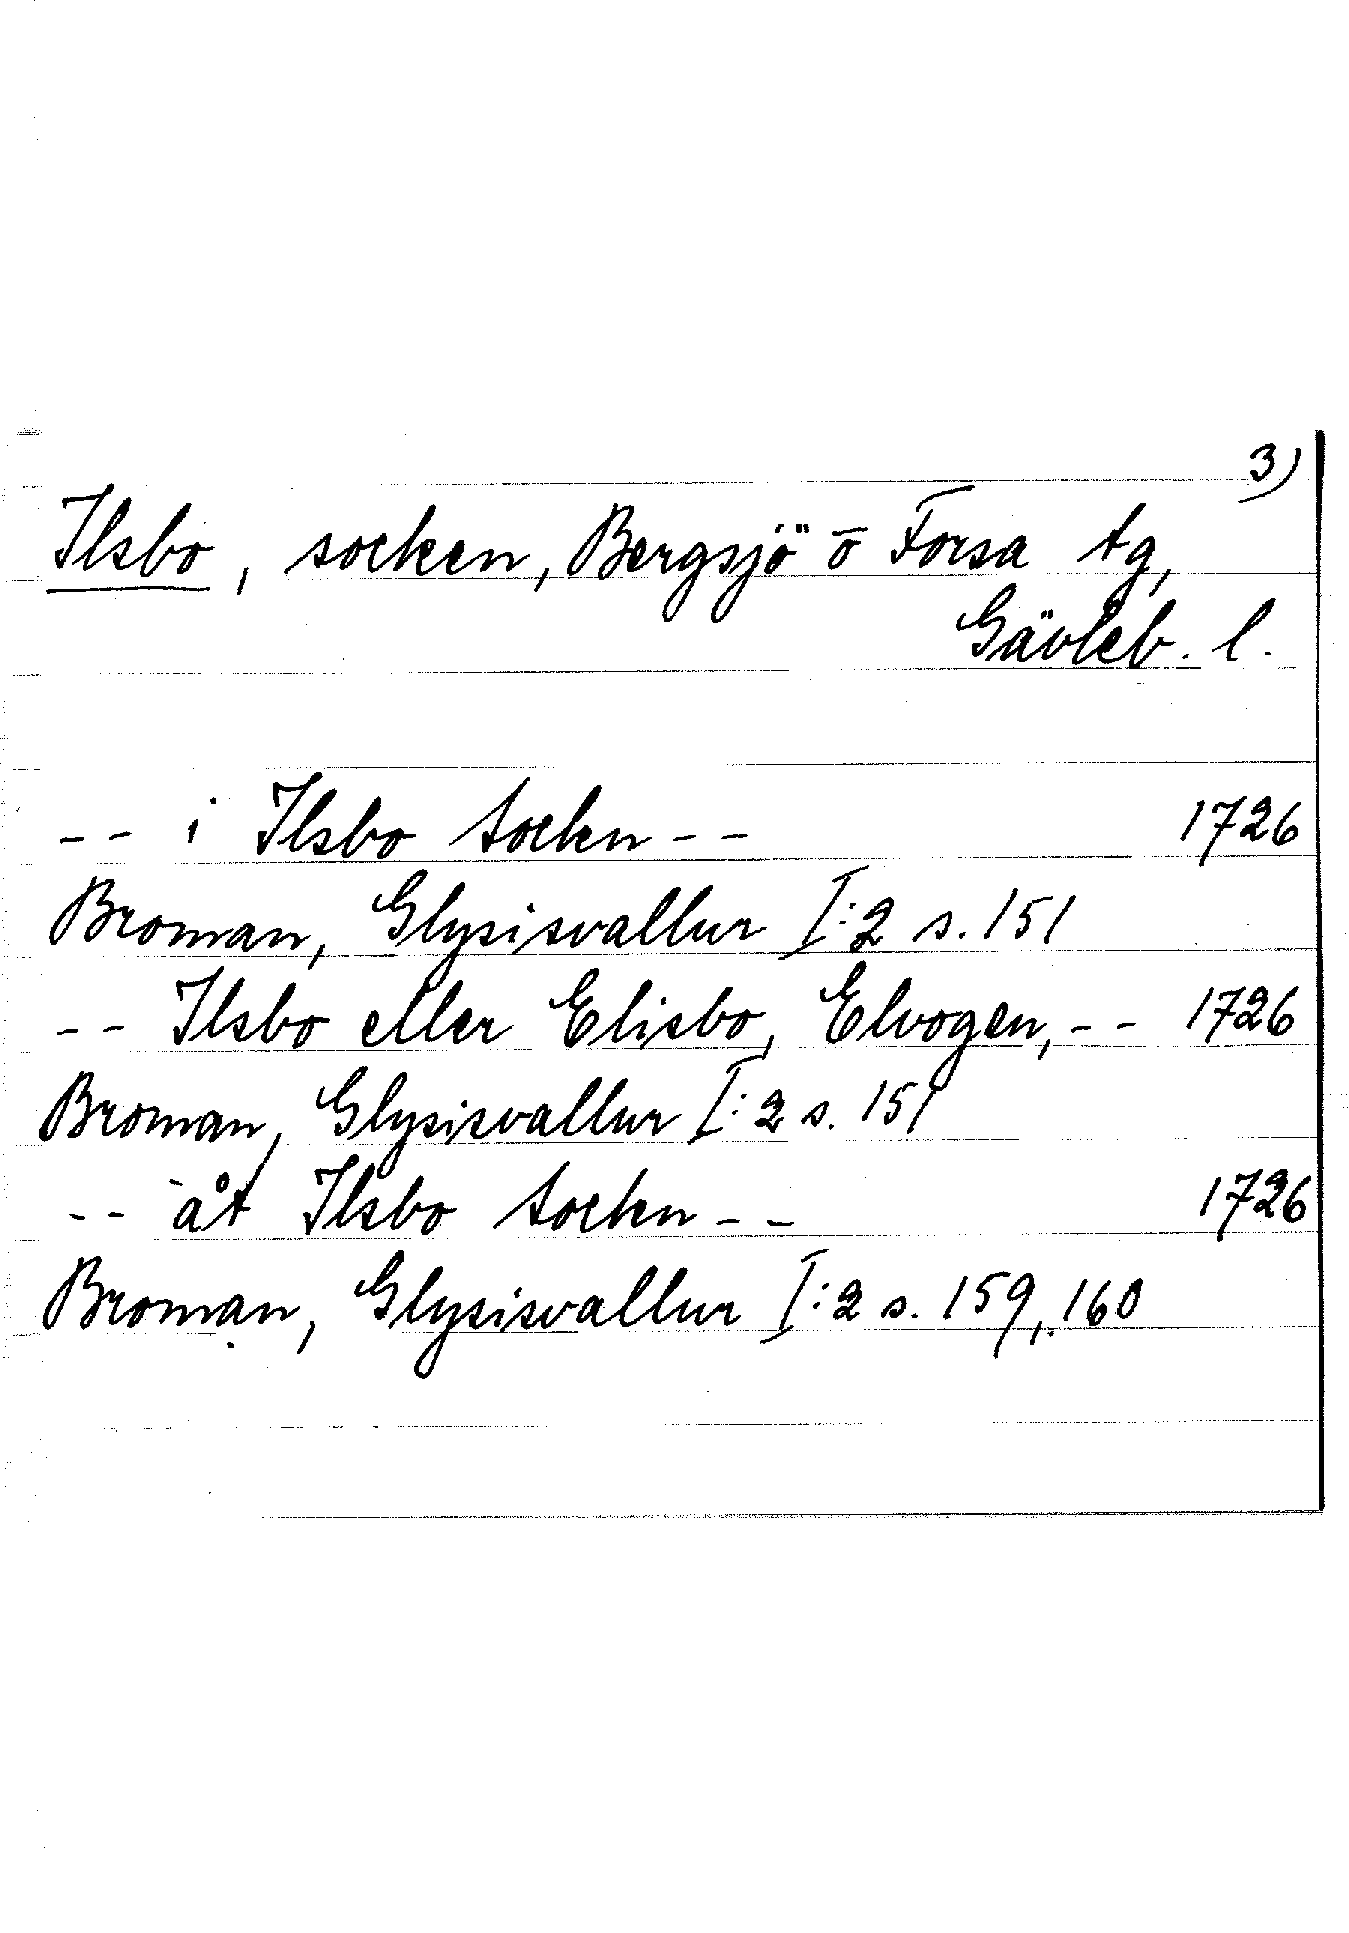 3)
Ilsbo, socken, Bergsjö o Forsa tg,
Gävleb. l.
-- i Ilsbo Socken -- 1726
Broman, Glysisvallur I:2 s. 151
-- Ilsbo eller Elisbo, Elvogen, -- 1726
Broman, Glysisvallur I:2 s. 151
-- åt Ilsbo Socken -- 1726
Broman, Glysisvallur I:2 s. 159, 160